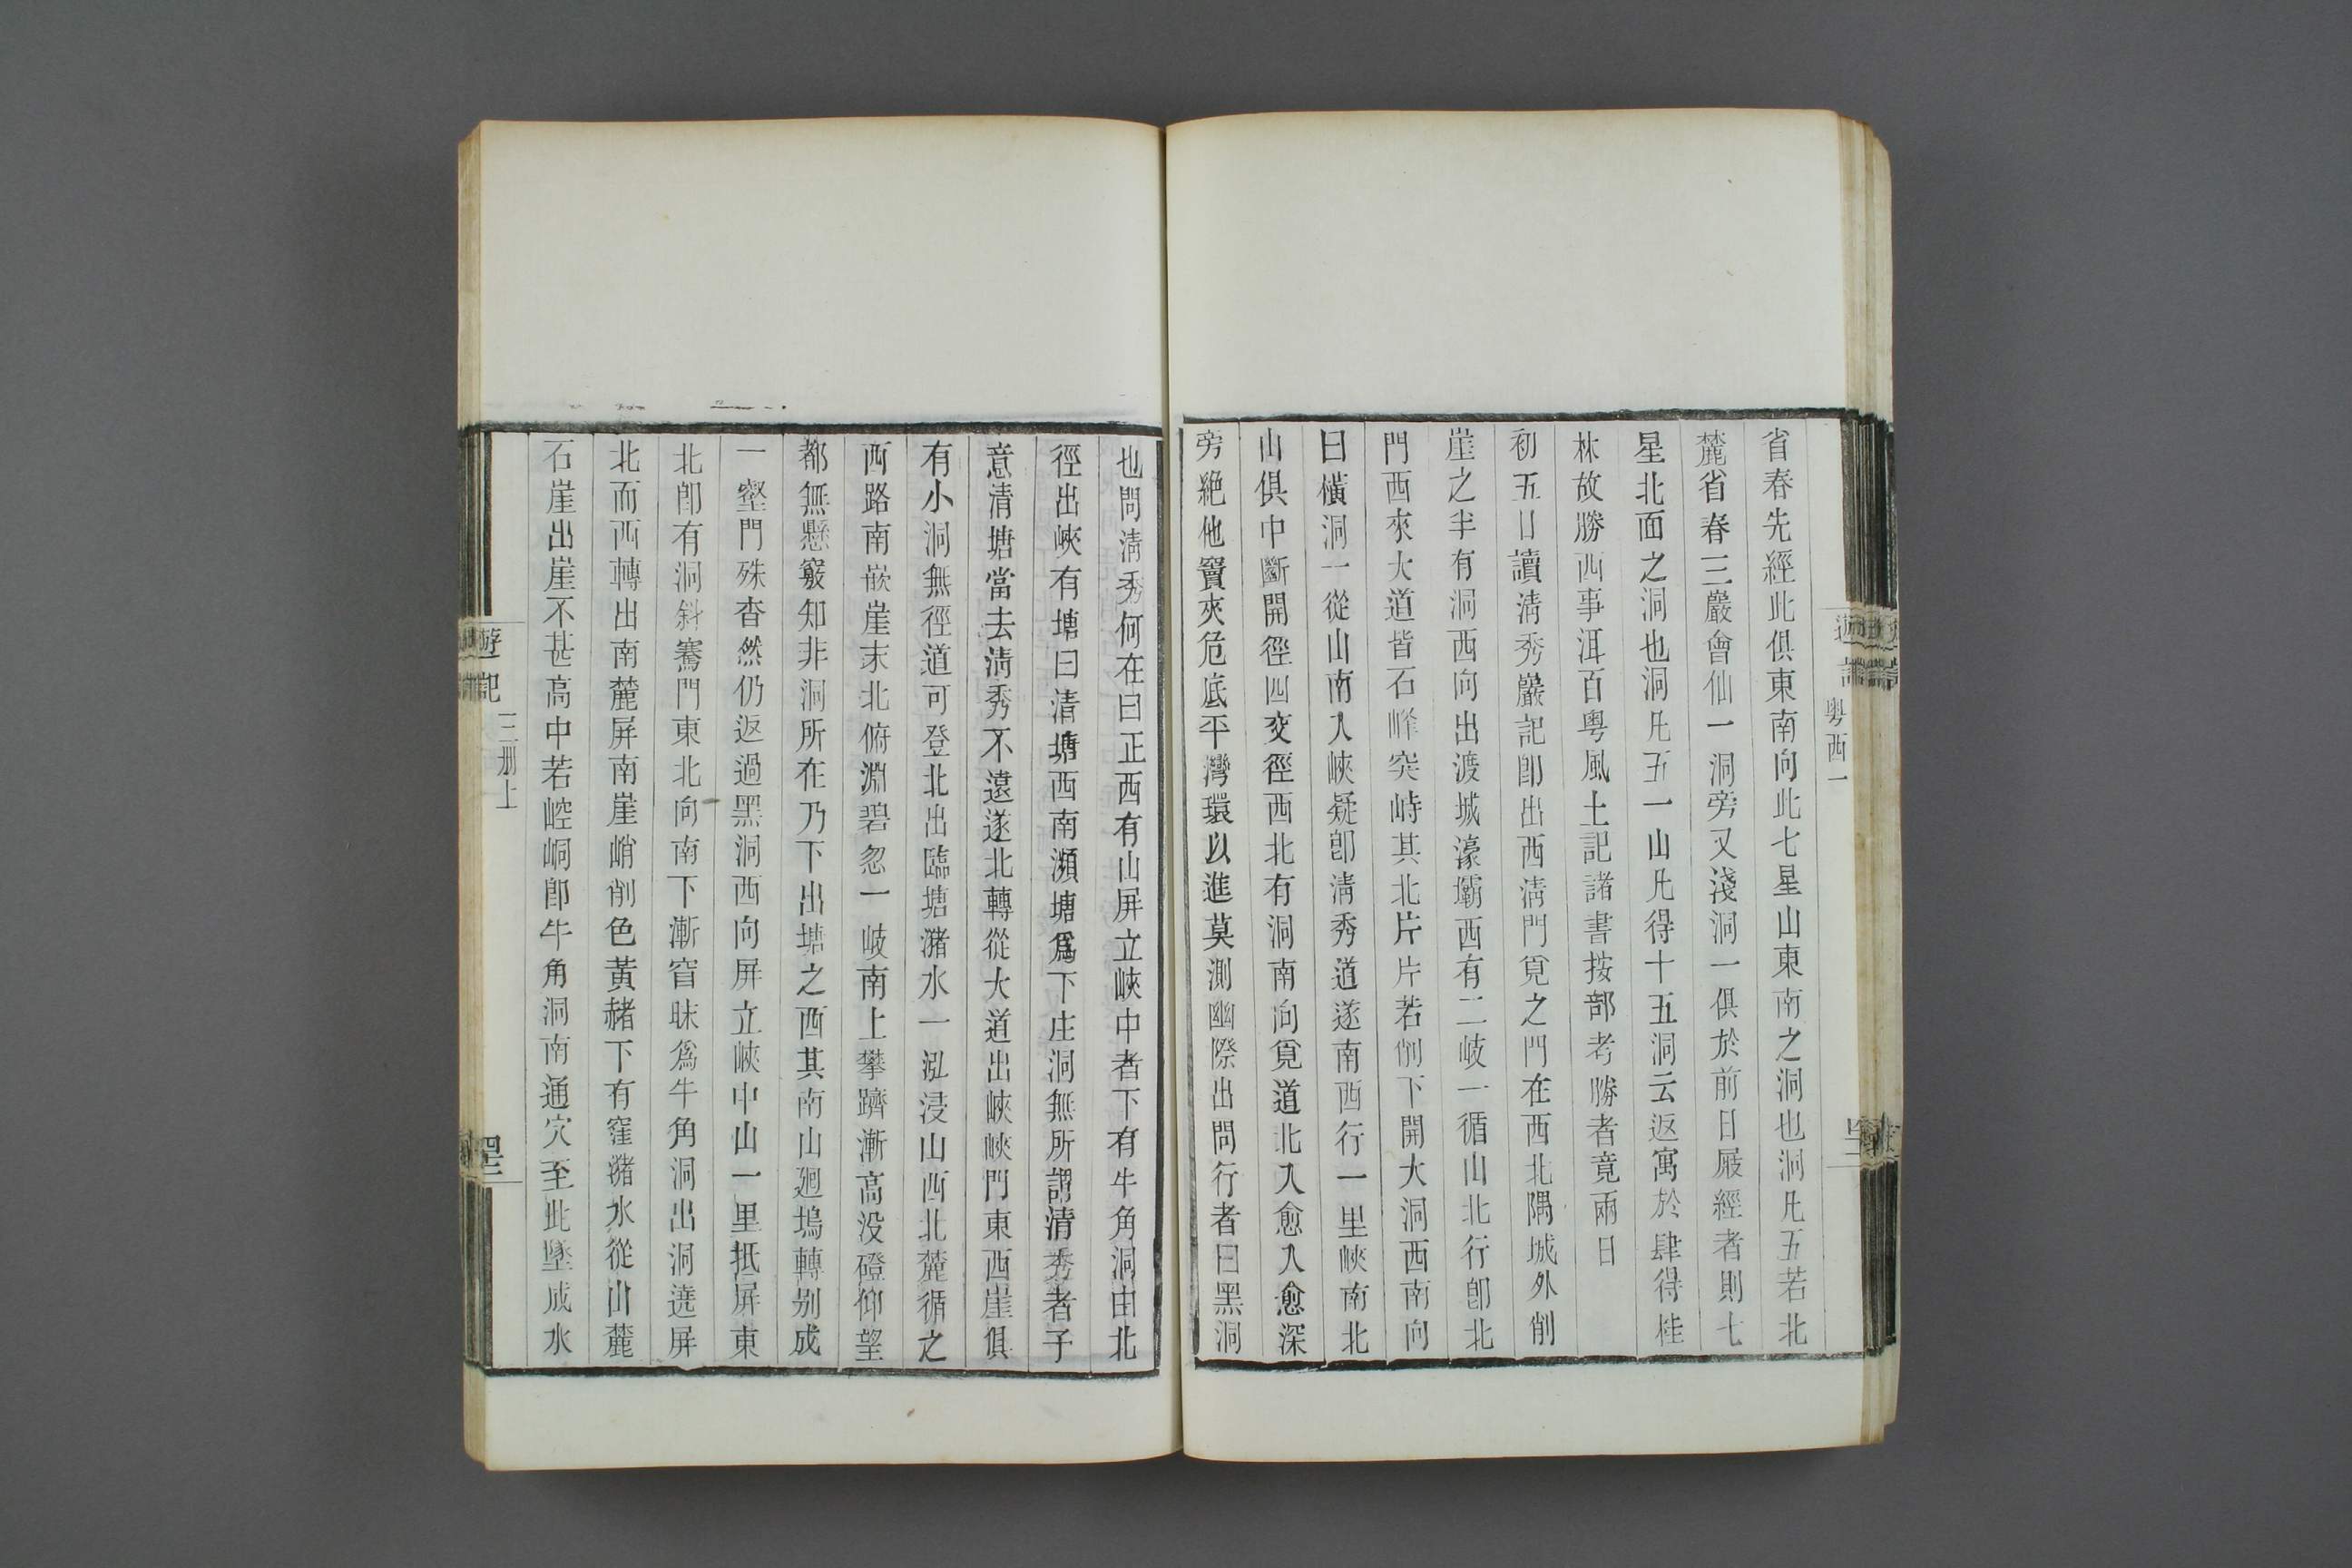 省春先經此俱東南向此七星山東南之洞也洞凡五若北
麓省春三巖會仙一洞旁又淺洞一俱於前日屐經者則七
星北面之洞也洞凡五一山凡得十五洞云返寓於肆得桂
林故勝西事洱百粵風土記諸書按部考勝者竟兩日
初五日讀清秀巖記卽出西清門覓之門在西北隅城外削
崖之半有洞西向出渡城濠壩西有二岐一循山北行卽北
門西來大道皆石峰突峙其北片片若削下開大洞西南向
曰橫洞一從山南入峽疑卽清秀道遂南西行一里峽南北
山俱中斷開徑四交徑西北有洞南向覓道北入愈入愈深
旁絶他竇夾危底平灣環以進莫測幽際出問行者曰黑洞
也問清秀何在曰正西有山屏立峽中者下有牛角洞由北
徑出峽有塘曰清塘西南瀕塘爲下庄洞無所謂清秀者子
意清塘當去清秀不遠遂北轉從大道出峽峽門東西崖俱
有小洞無徑道可登北出臨塘瀦水一泓浸山西北麓循之
西路南嵌崖末北俯淵碧忽一岐南上攀躋漸高没磴仰望
都無懸竅知非洞所在乃下出塘之西其南山廻塢轉别成
一壑門殊杳然仍返過黑洞西向屏立峽中山一里抵屏東
北卽有洞斜騫門東北向南下漸窅昧爲牛角洞出洞遶屏
北而西轉出南麓屏南崖峭削色黃赭下有窪瀦水從山麓
石崖出崖不甚高中若崆峒卽牛角洞南通穴至此墜成水
遊記
粵西一
遊記
三册上